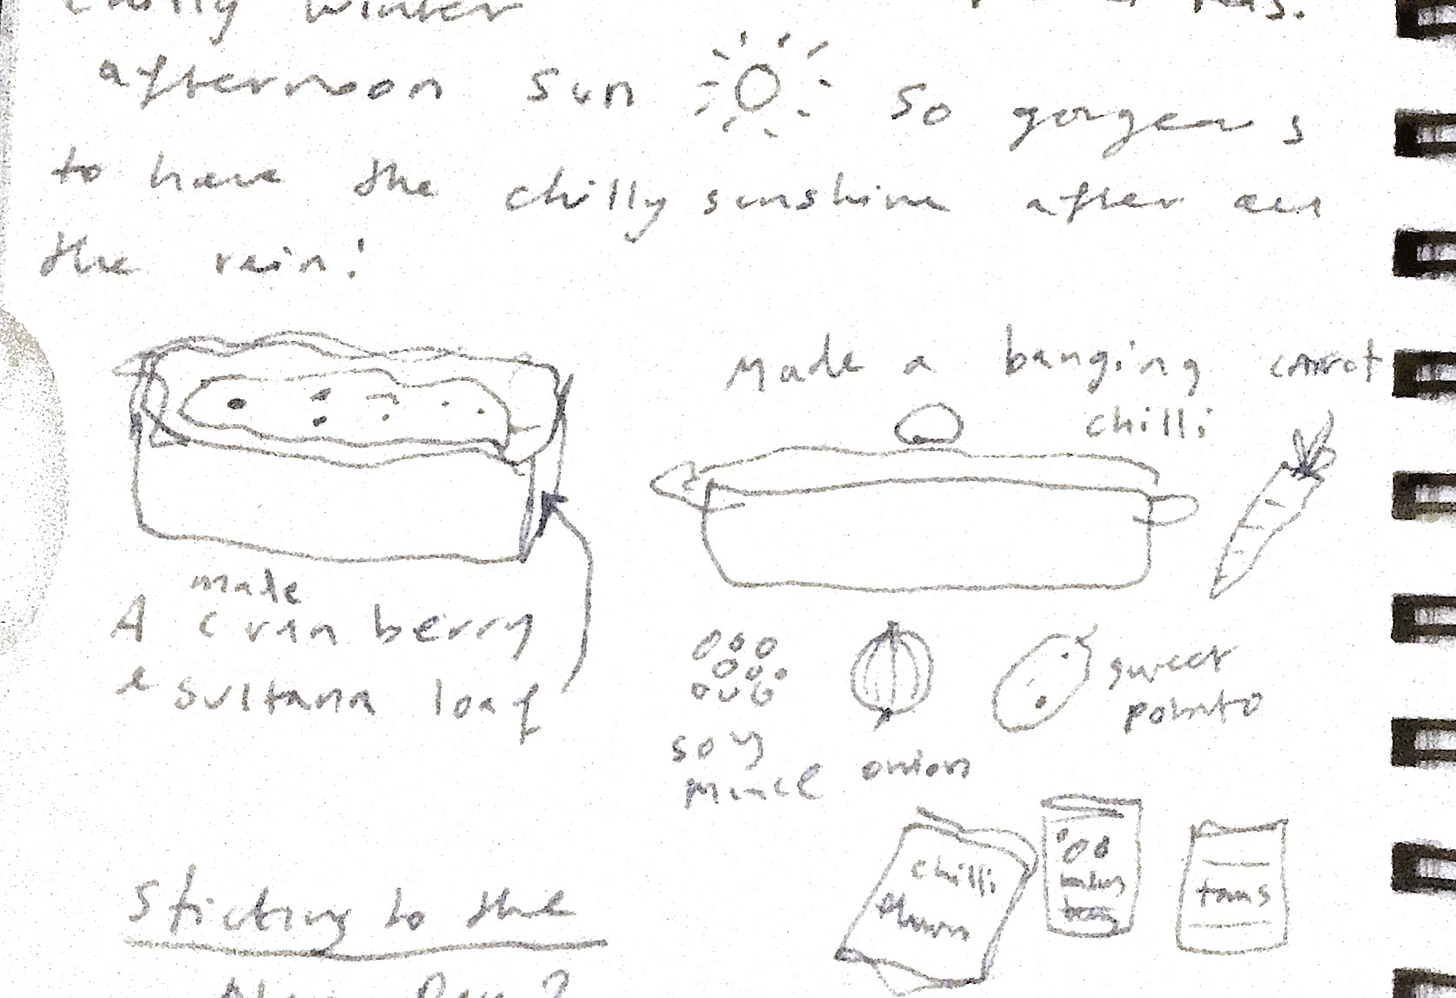 chilly winter
afternoon sun so gorgeous
to have the chilly sunshine after all
the rain!
Made a banging carrot
chilli
made
A cranberry
& sultana loaf
sweet
potato
soy
mince
onion
chilli
beans
toms
Sticking to the